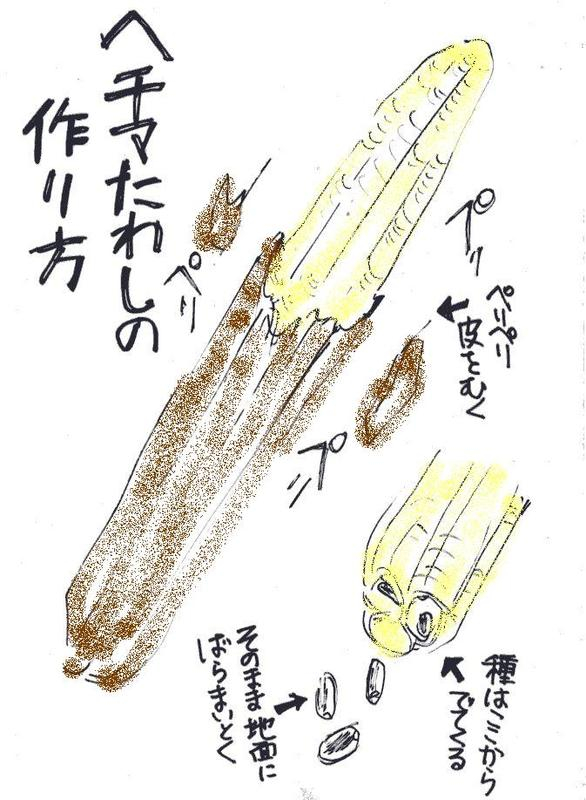 ヘチマたわしの
作り方
ペリ
プリ
ペリペリ
皮をむく
プ
種はココから
でてくる
そのまま地面に
ばらまいとく